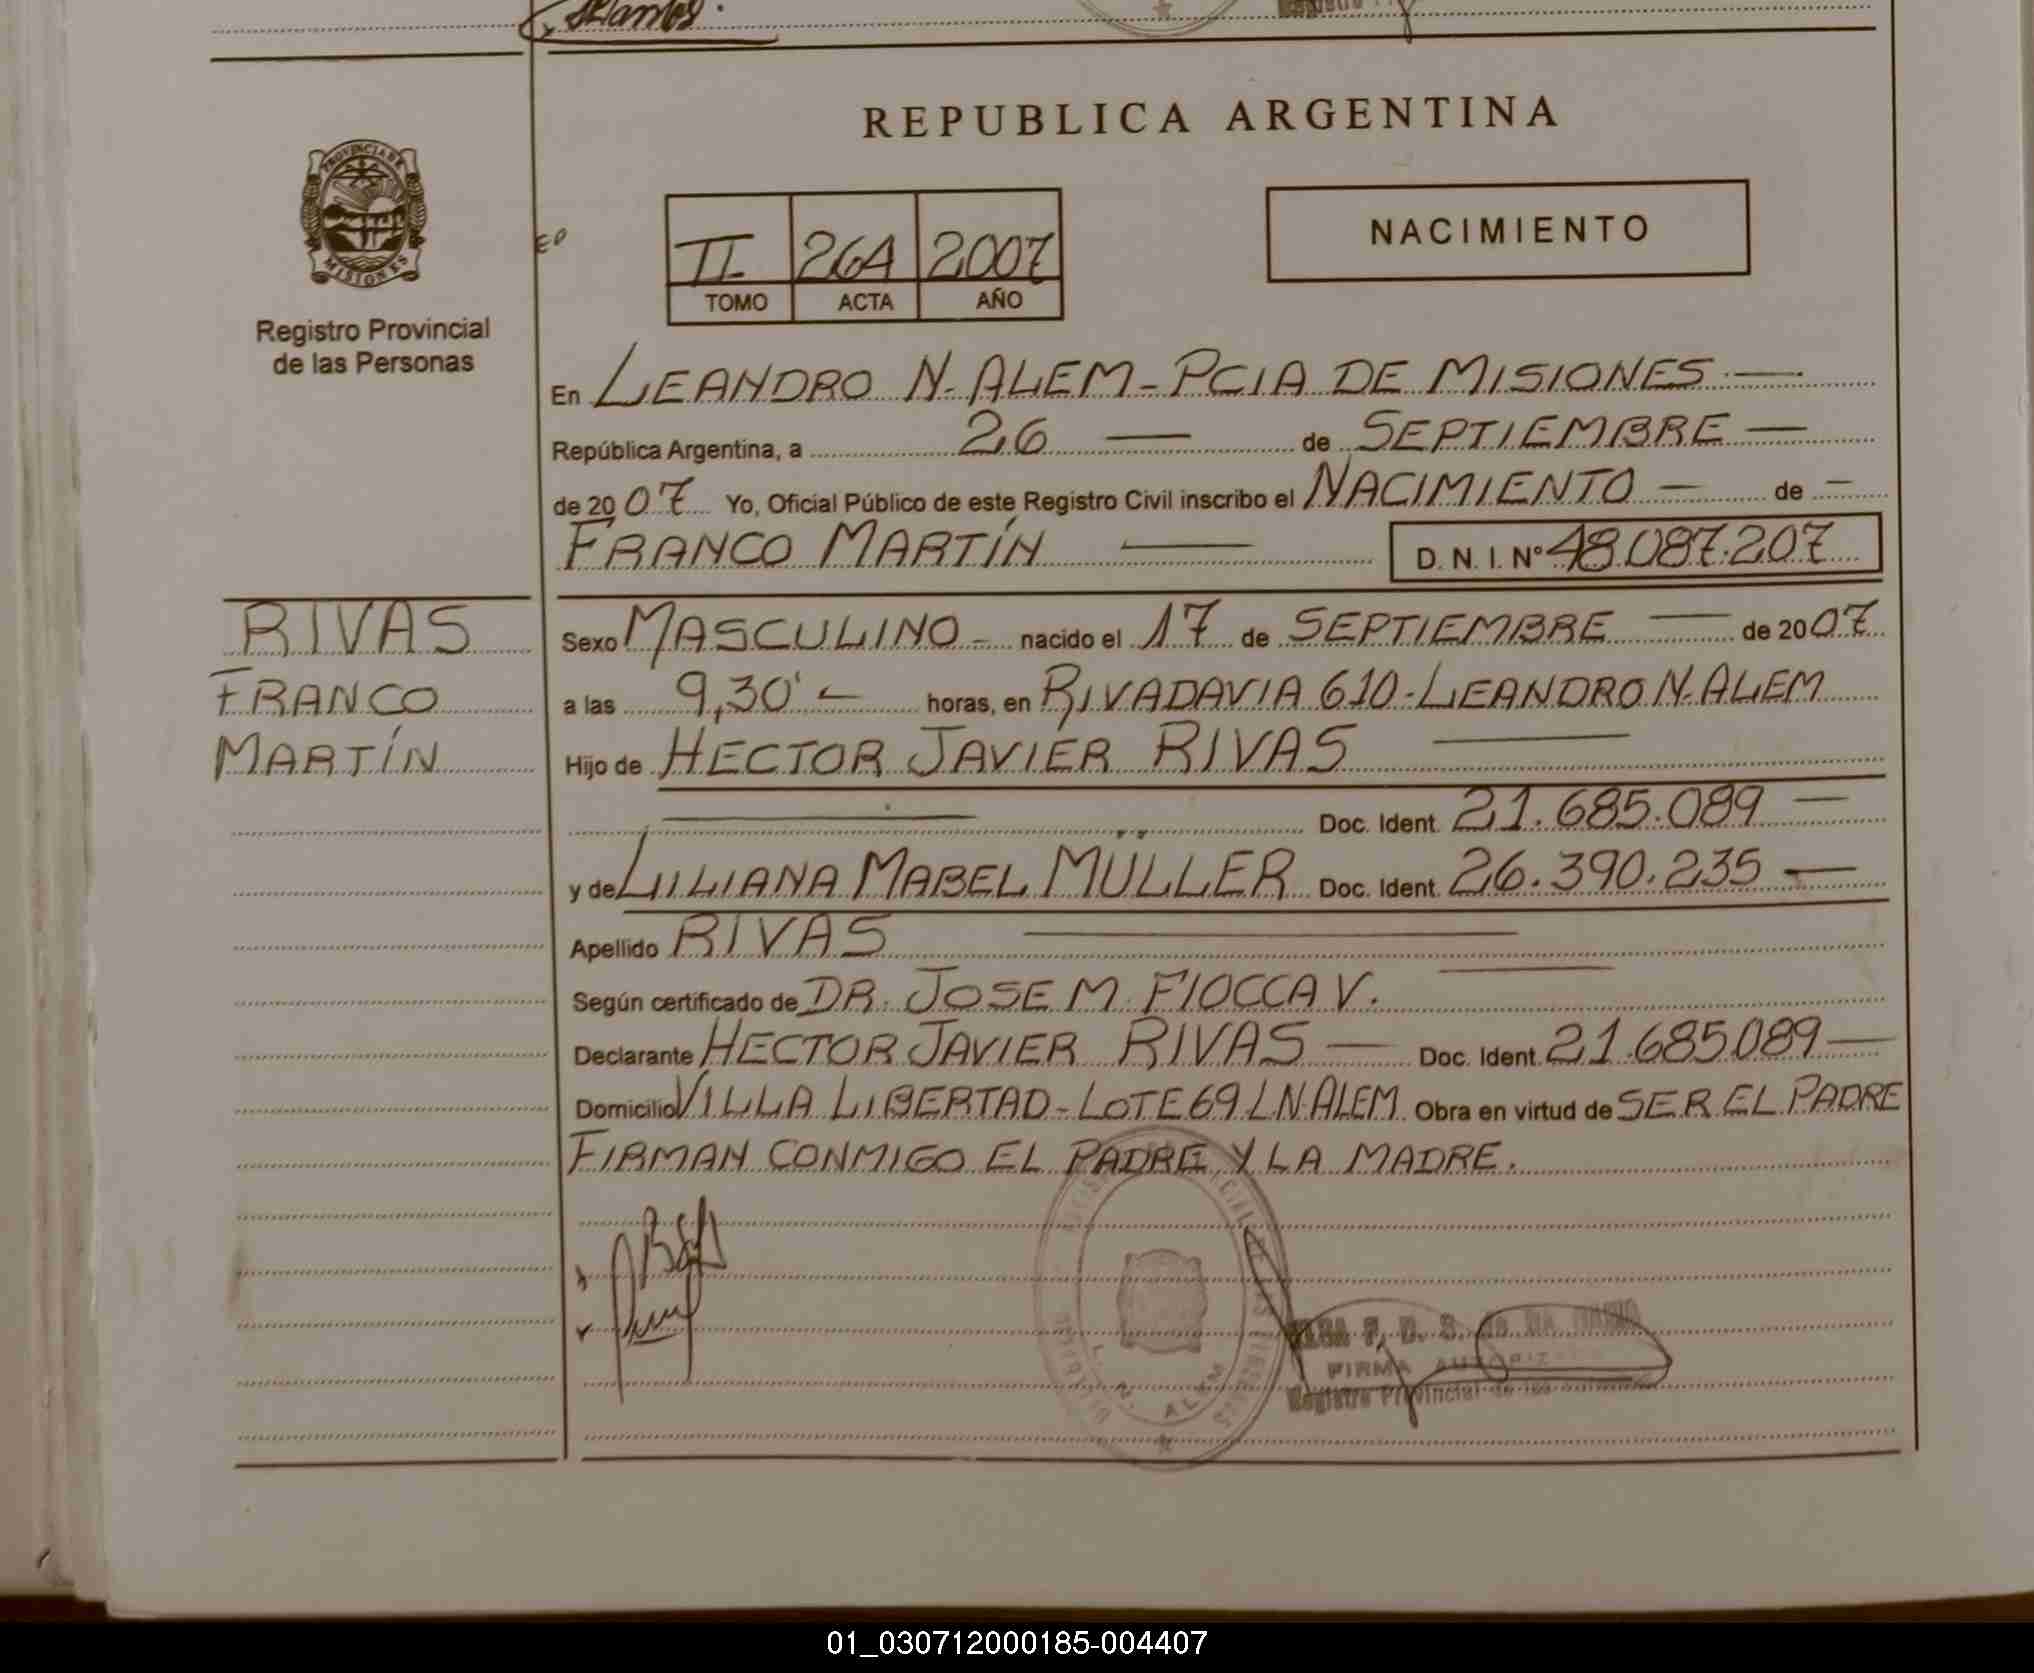 REPUBLICA ARGENTINA
PROVINCIA DE
MISIONES
Registro Provincial
de las Personas
II 264 2007
TOMO ACTA AÑO
NACIMIENTO
En LEANDRO N. ALEM - PCIA DE MISIONES.—
República Argentina, a 26 — de SEPTIEMBRE —
de 2007 Yo, Oficial Público de este Registro Civil inscribo el NACIMIENTO — de —
FRANCO MARTÍN — D. N. I. Nº 48.087.207
RIVAS
FRANCO
MARTÍN
Sexo MASCULINO - nacido el 17 de SEPTIEMBRE — de 2007
a las 9,30' — horas, en RIVADAVIA 610 - LEANDRO N. ALEM
Hijo de HECTOR JAVIER RIVAS —
— Doc. Ident. 21.685.089 —
y de LILIANA MABEL MÜLLER Doc. Ident. 26.390.235 —
Apellido RIVAS —
Según certificado de DR. JOSE M. FIOCCA V. —
Declarante HECTOR JAVIER RIVAS — Doc. Ident. 21.685.089 —
Domicilio VILLA LIBERTAD - LOTE 69 L.N. ALEM Obra en virtud de SER EL PADRE
FIRMAN CONMIGO EL PADRE Y LA MADRE.
L. N. ALEM
FIRMA AUTORIZ
Registro Provincial de las
01_030712000185-004407